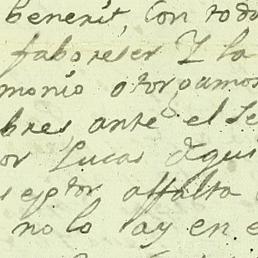 benerit, Con todo
faboreser Y la
monio otorgamos
bres ante el Se
or Lucas Agui
septor affalta
no lo ay en e